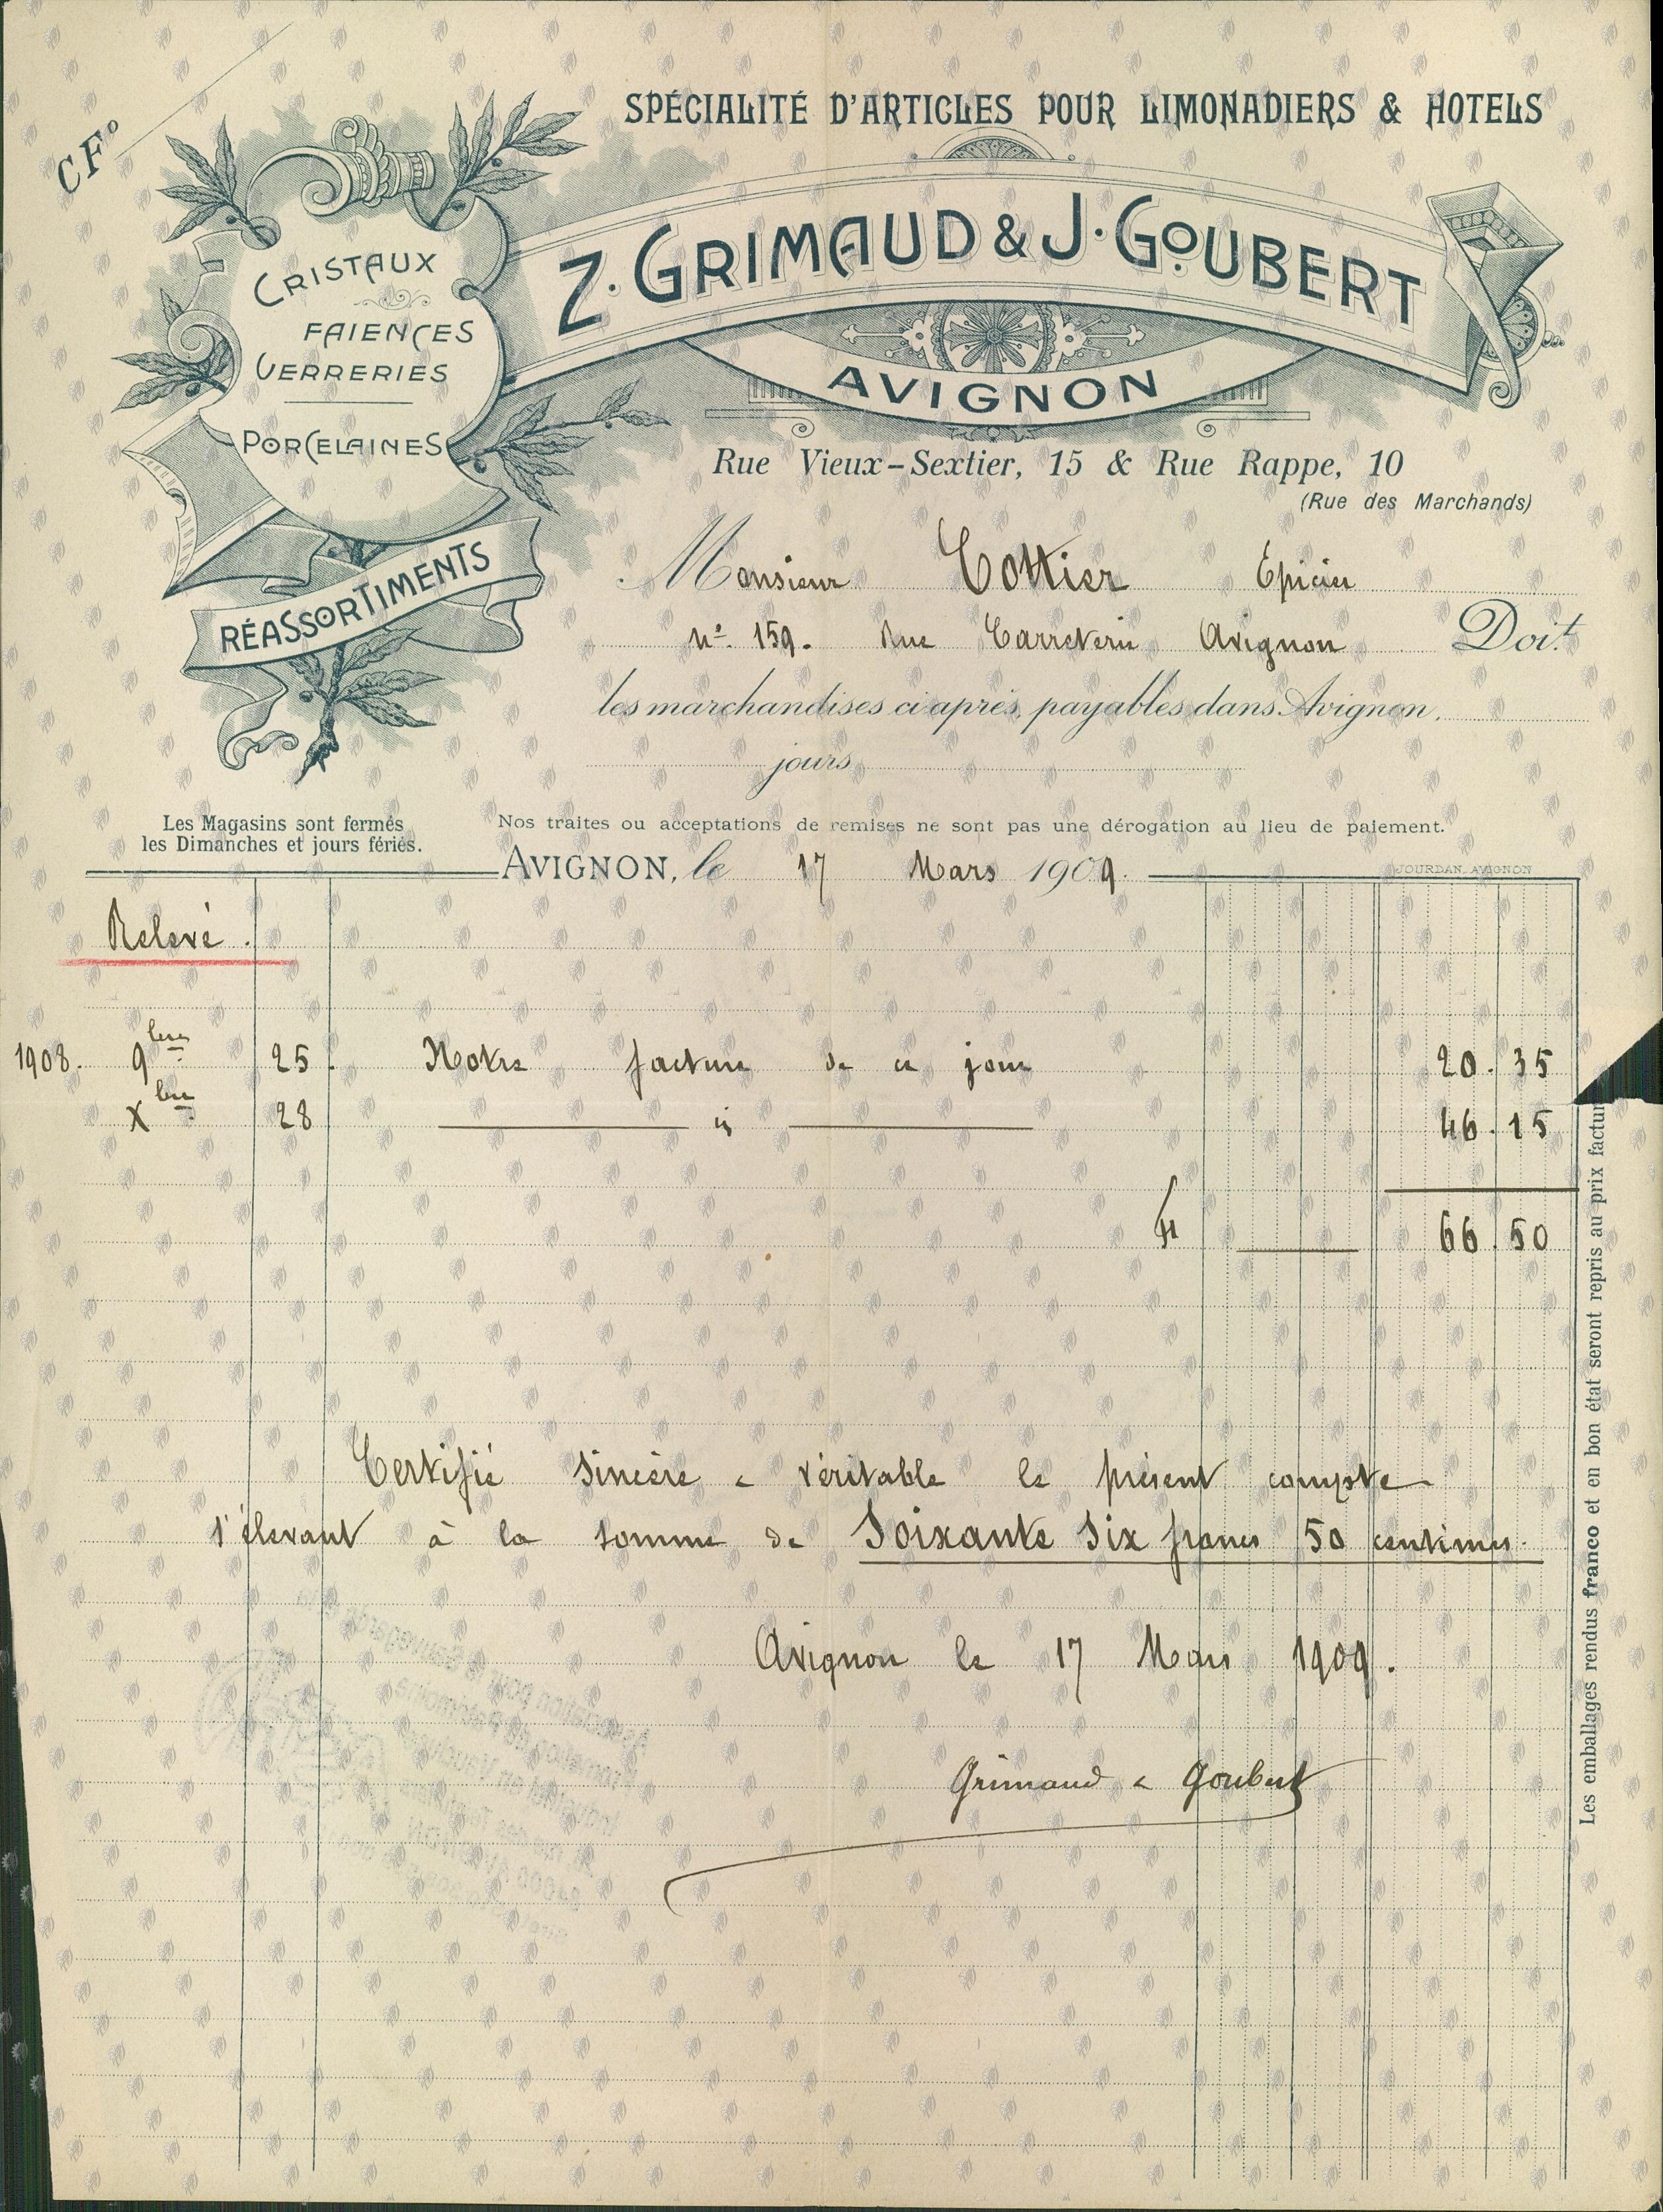 CFº
SPÉCIALITÉ D'ARTICLES POUR LIMONADIERS & HOTELS
Z. GRIMAUD & J. GOUBERT
AVIGNON
CRISTAUX
FAIENCES
VERRERIES
PORCELAINES
RÉASSORTIMENTS
Rue Vieux-Sextier, 15 & Rue Rappe, 10
(Rue des Marchands)
Monsieur Cottier Epicier
Nº 159. Rue Carreterie Avignon Doit
les marchandises ci après, payables dans Avignon.
jours
Les Magasins sont fermés
les Dimanches et jours fériés.
Nos traites ou acceptations de remises ne sont pas une dérogation au lieu de paiement.
AVIGNON, le 17 Mars 1909.
JOURDAN. AVIGNON
Relevé.
1908. 9bre 25. Notre facture de ce jour 20.35
Xbre 28 46.15
66.50
Certifié sincère & véritable le présent compte
s'élevant à la somme de Soixante six francs 50 centimes.
Avignon le 17 Mars 1909.
Grimaud & Goubert
Les emballages rendus franco et en bon état seront repris au prix factur